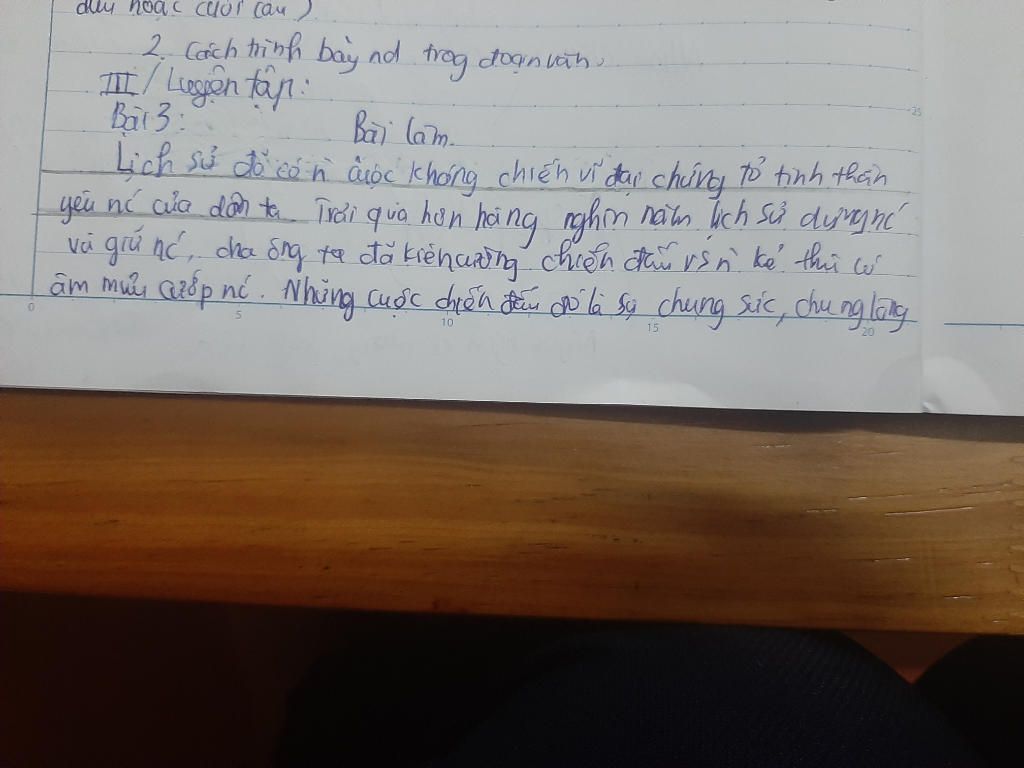 đầu hoặc cuối câu).
2. Cách trình bày nd trog đoạn văn.
III/ Luyện tập:
Bài 3:
Bài làm.
Lịch sử đã có n̄ cuộc kháng chiến vĩ đại chứng tỏ tinh thần
yêu nc' của dân ta Trải qua hơn hàng nghìn năm lịch sử dựng nc'
và giữ nc', cha ông ta đã kiên cường chiến đấu vs n̄ kẻ thù có
âm mưu cướp nc'. Những cuộc chiến đấu đó là sự chung sức, chung lòng
0 5 10 15 20
25